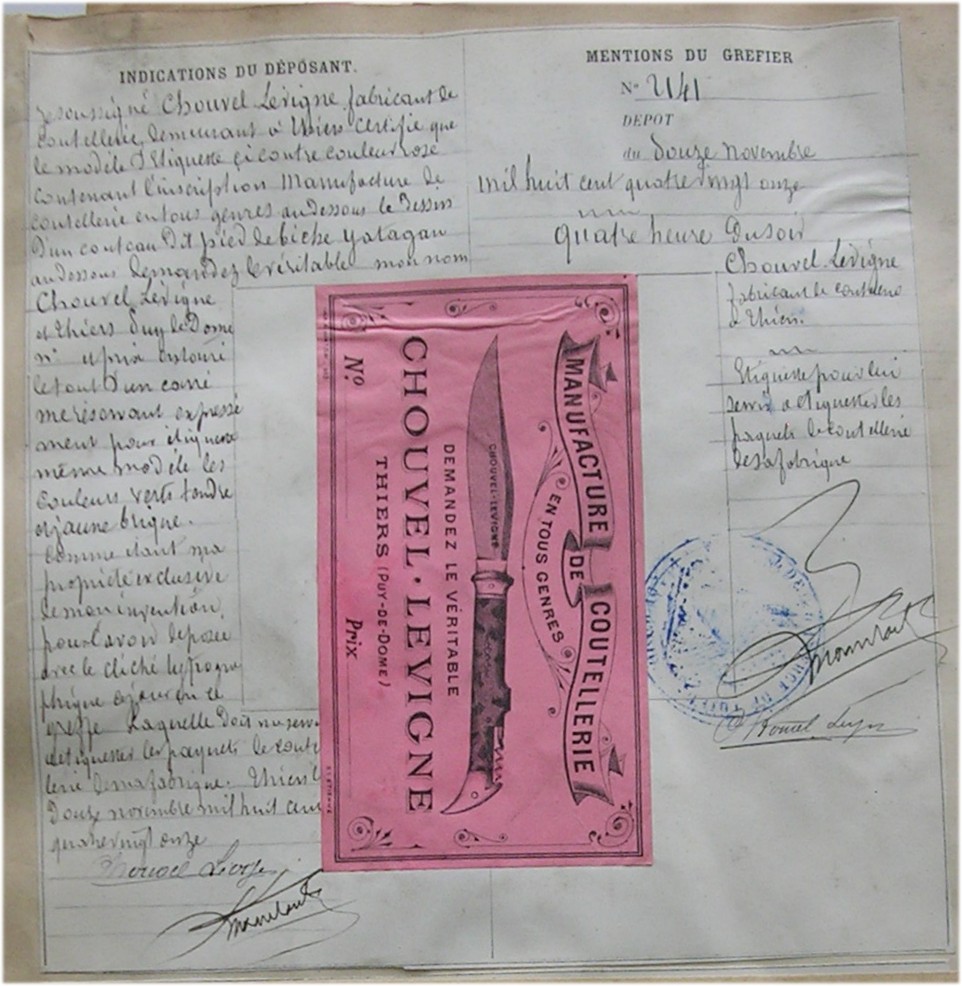 INDICATIONS DU DÉPOSANT.
Je soussigné Chouvel Levigne fabricant de
coutellerie demeurant à Thiers certifie que
le modèle d'Etiquette ci contre couleur rose
contenant l'inscription Manufacture de
coutellerie en tous genres au dessous le dessin
d'un couteau dit pied de biche yatagan
au dessous demandez le véritable mon nom
Chouvel Levigne
et thiers Puy le Dome
n° prix entouré
le tout d'un carré
me réservant expressé
ment pour étiquette
même modèle les
couleurs verte tendre
et jaune brique.
Comme étant ma
propriété exclusive
de mon invention,
pour l'avoir déposée
avec le cliché typogra
phique ce jour en ce
greffe Laquelle doit me servir
a etiquetter les paquets de coutel
lerie de ma fabrique. Thiers le
Douze novembre mil huit cent
quatre vingt onze
MENTIONS DU GREFIER
N° 2141
DEPOT
du Douze novembre
mil huit cent quatre vingt onze
quatre heure du soir
Chouvel Levigne
fabricant de coutellerie
à Thiers.
Etiquette pour lui
servir a etiquetter les
paquets de coutellerie
de sa fabrique
MANUFACTURE DE COUTELLERIE
EN TOUS GENRES
CHOUVEL-LEVIGNE
DEMANDEZ LE VÉRITABLE
CHOUVEL-LEVIGNE
THIERS (PUY-DE-DOME)
N° Prix